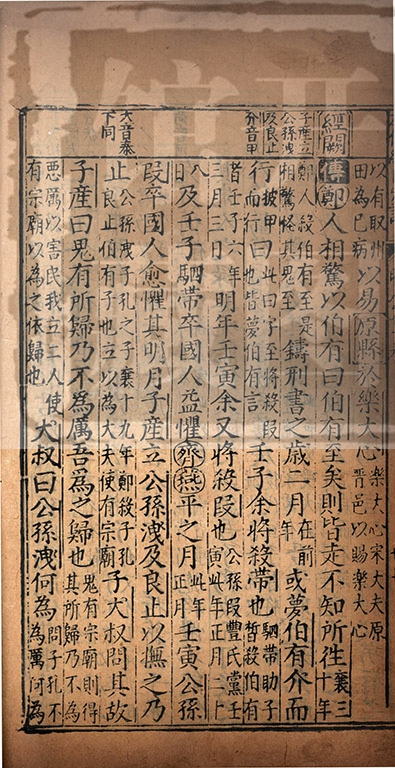 以有取州
田為已病
以易原縣於樂大心
樂大心宋大夫原
晉邑以賜樂大心
經闕
傳鄭人相驚以伯有曰伯有至矣則皆走不知所往
襄三
十年
鄭人殺伯有至是
相驚怪其鬼至
鑄刑書之歲二月
在前
年
或夢伯有介而
子產立
公孫洩
及良止
介音甲
行
披甲
而行
曰
此曰字至將殺段
也皆夢伯有言
壬子余將殺帶也
駟帶助子
皙殺伯有
者壬子六年
三月三日
明年壬寅余又將殺段也
公孫段豐氏黨壬
寅此年正月二十
八
日
及壬子駟帶卒國人益懼齊燕平之月
此年
正月
壬寅公孫
段卒國人愈懼其明月子產立公孫洩及良止以撫之乃
大音泰
下同
止
公孫洩子孔之子襄十九年鄭殺子孔
良止伯有子也立以為大夫使有宗廟
子大叔問其故
子產曰鬼有所歸乃不為厲吾為之歸也
鬼有宗廟則得
其所歸乃不為
惡厲以害民我立二人使
有宗廟以為之依歸也
大叔曰公孫洩何為
問子孔不
為厲何為